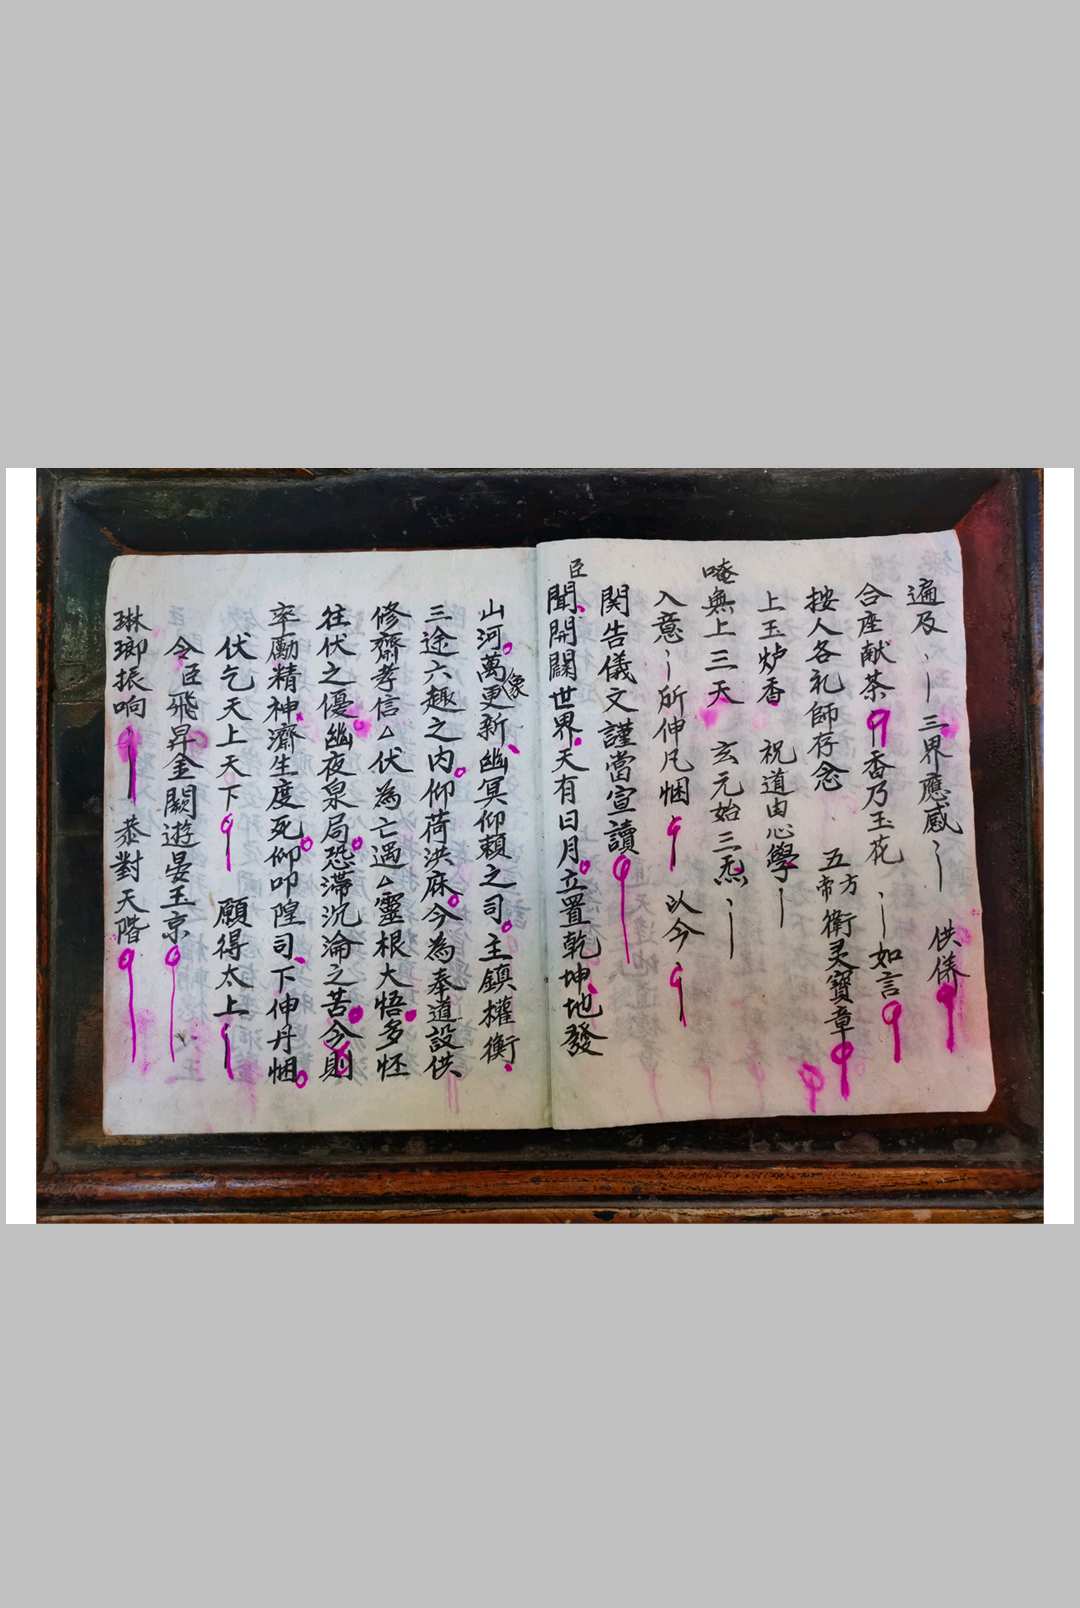 遍及、｜三界應感、｜供侟
合座献茶　香乃玉花、｜如言
按人各礼師存念　五方五帝衛灵寶章
上玉炉香　祝道由心學｜
唵無上三天　玄元始三炁、｜
入意、｜所伸凡悃　以今、
関告儀文謹當宣讀
臣聞開闢世界天有日月立置乾坤地發
山河萬像更新幽冥仰賴之司主鎮權衡
三途六趣之内仰荷洪庥今為奉道設供
修齋孝信△伏為亡過△靈根大悟多怌
往伏之優幽夜泉局恐滯沉淪之苦今則
率勵精神濟生度死仰叩隍司下伸丹悃
伏乞天上天下　願得太上
令臣飛昇金闕遊晏玉京
琳瑯振响　恭對天階